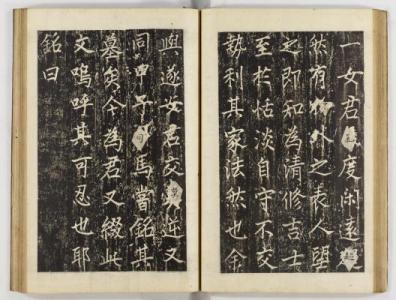 一女君度閑遠
然有物外之表人望
之即知為清修吉士
至於恬淡自守不交
勢利其家法然也余
與遂君交逆又
同甲子馬嘗銘其
墓矣今為君又綴此
文嗚呼其可忍也耶
銘曰